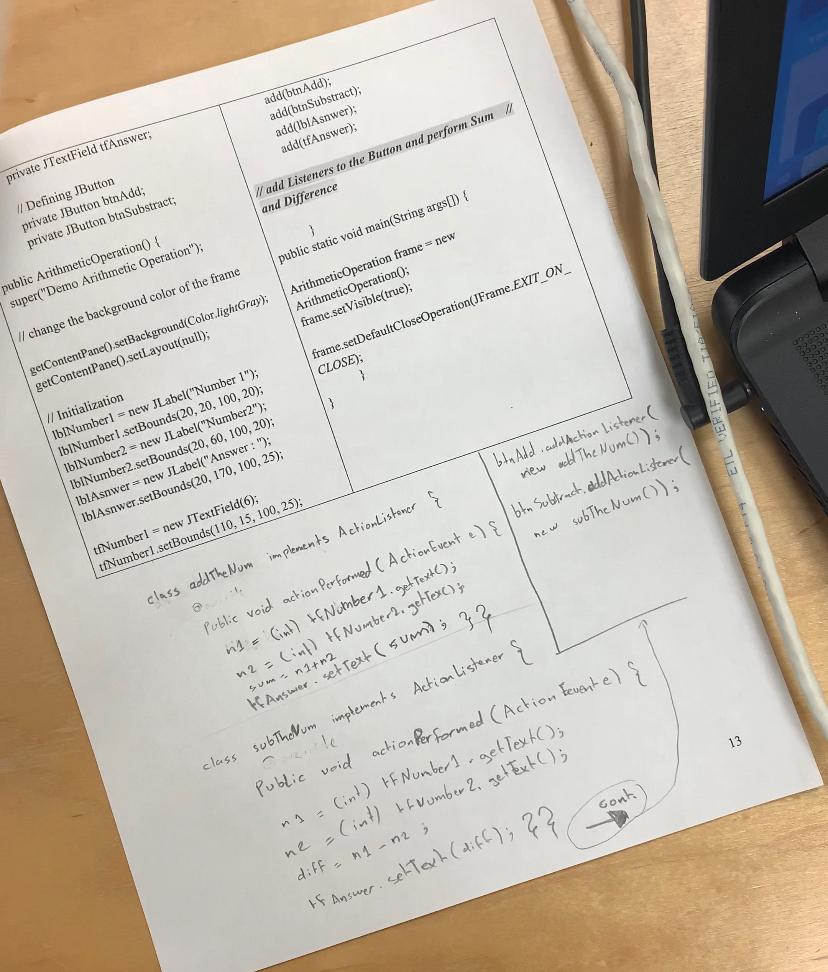 private JTextField tfAnswer;
// Defining JButton
private JButton btnAdd;
private JButton btnSubstract;
public ArithmeticOperation() {
super("Demo Arithmetic Operation");
// change the background color of the frame
getContentPane().setBackground(Color.lightGray);
getContentPane().setLayout(null);
// Initialization
lblNumber1 = new JLabel("Number 1");
lblNumber1.setBounds(20, 20, 100, 20);
lblNumber2 = new JLabel("Number2");
lblNumber2.setBounds(20, 60, 100, 20);
lblAsnwer = new JLabel("Answer :");
lblAsnwer.setBounds(20, 170, 100, 25);
tfNumber1 = new JTextField(6);
tfNumber1.setBounds(110, 15, 100, 25);
add(btnAdd);
add(btnSubstract);
add(lblAsnwer);
add(tfAnswer);
// add Listeners to the Button and perform Sum //
and Difference
}
public static void main(String args[]) {
ArithmeticOperation frame = new
ArithmeticOperation();
frame.setVisible(true);
frame.setDefaultCloseOperation(JFrame.EXIT_ON_
CLOSE);
}
}
class addTheNum implements ActionListener {
Public void actionPerformed (ActionEvent e) {
n1 = (int) tfNumber1.getText();
n2 = (int) tfNumber2.getText();
sum = n1+n2
tfAnswer.setText(sum); }}
class subTheNum implements ActionListener {
Public void actionPerformed (Action Event e) {
n1 = (int) tfNumber1.getText();
n2 = (int) tfNumber2.getText();
diff = n1 - n2 ;
tfAnswer.setText(diff); }}
cont.
btnAdd.addActionListener(
new addTheNum());
btnSubtract.addActionListener(
new subTheNum());
13
ETL VERIFIED